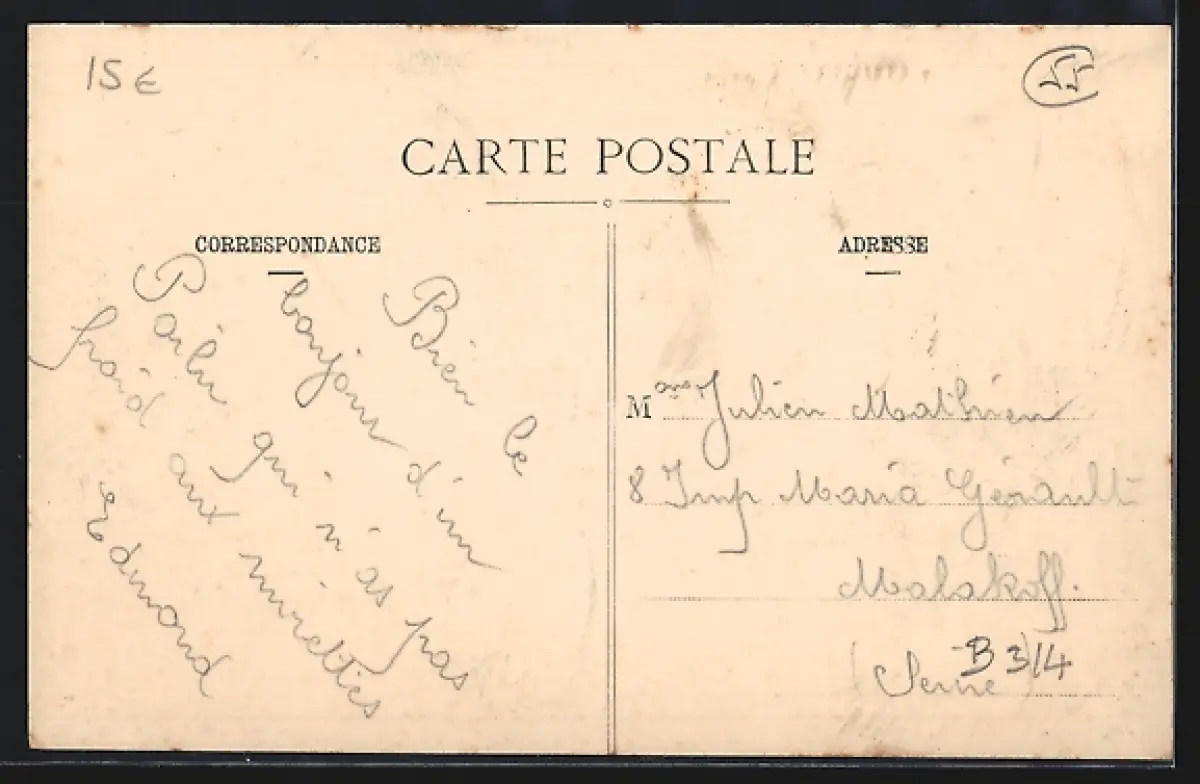 15€
55
CARTE POSTALE
CORRESPONDANCE
Bien le
bonjour d'un
Poilu qui n'as pas
froid aux mirettes
Edmond
ADRESSE
Mme Julien Mathieu
8 Imp Maria Gérault
Malakoff.
(Seine)
B 3/4